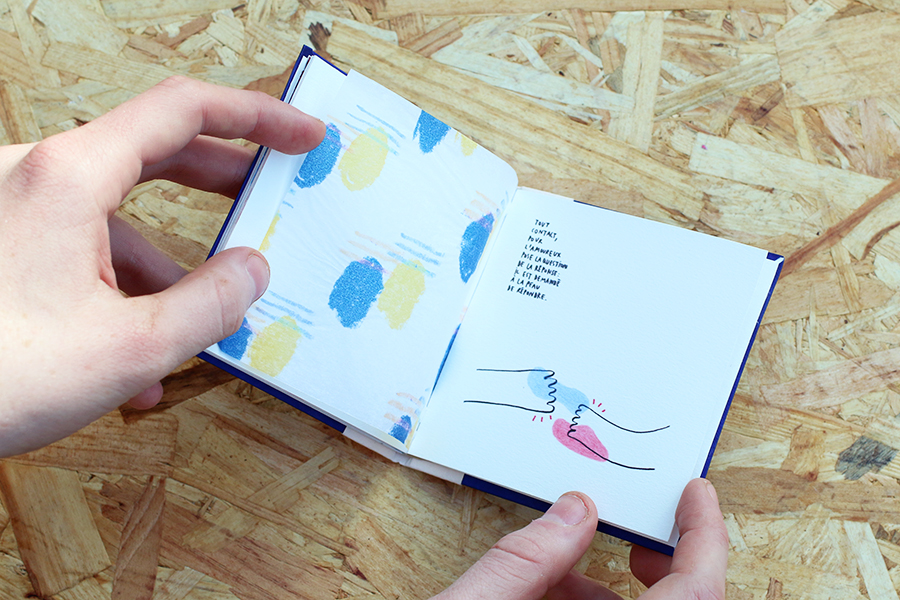 TOUT
CONTACT,
POUR
L'AMOUREUX
POSE LA QUESTION
DE LA RÉPONSE.
IL EST DEMANDÉ
À LA PEAU
DE RÉPONDRE.